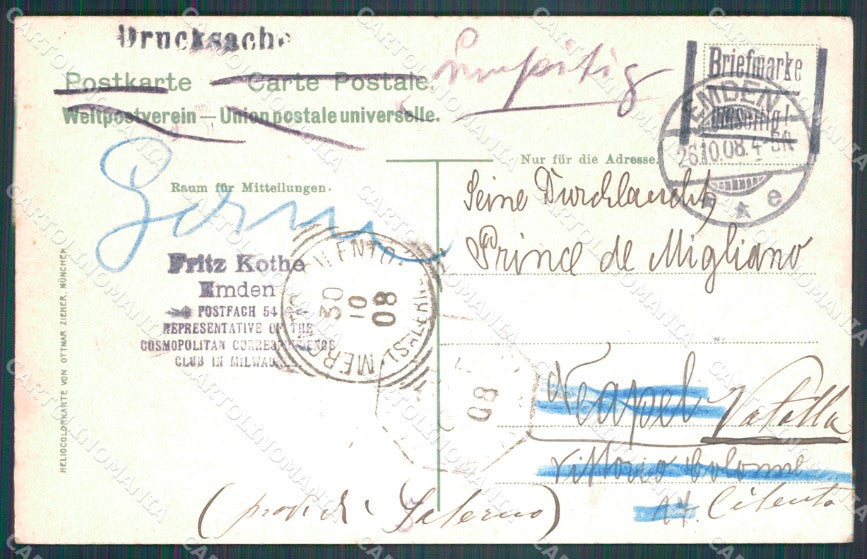 Drucksache
Postkarte — Carte Postale.
Weltpostverein — Union postale universelle.
Briefmarke
EMDEN
26.10.08.4-5N
* e
Nur für die Adresse.
Raum für Mitteilungen.
Seine Durchlaucht
Prince de Migliano
Fritz Kothe
Emden
POSTFACH 54
REPRESENTATIVE OF THE
COSMOPOLITAN CORRESPONDENCE
CLUB IN MILWAU
MERCATO
30
10
08
08
Neapel Vatolla
Vittorio Colonna
14. Cilento
(prov. di Salerno)
HELIOCOLORKARTE VON OTTMAR ZIEHER, MÜNCHEN
CARTOLINOMANIA